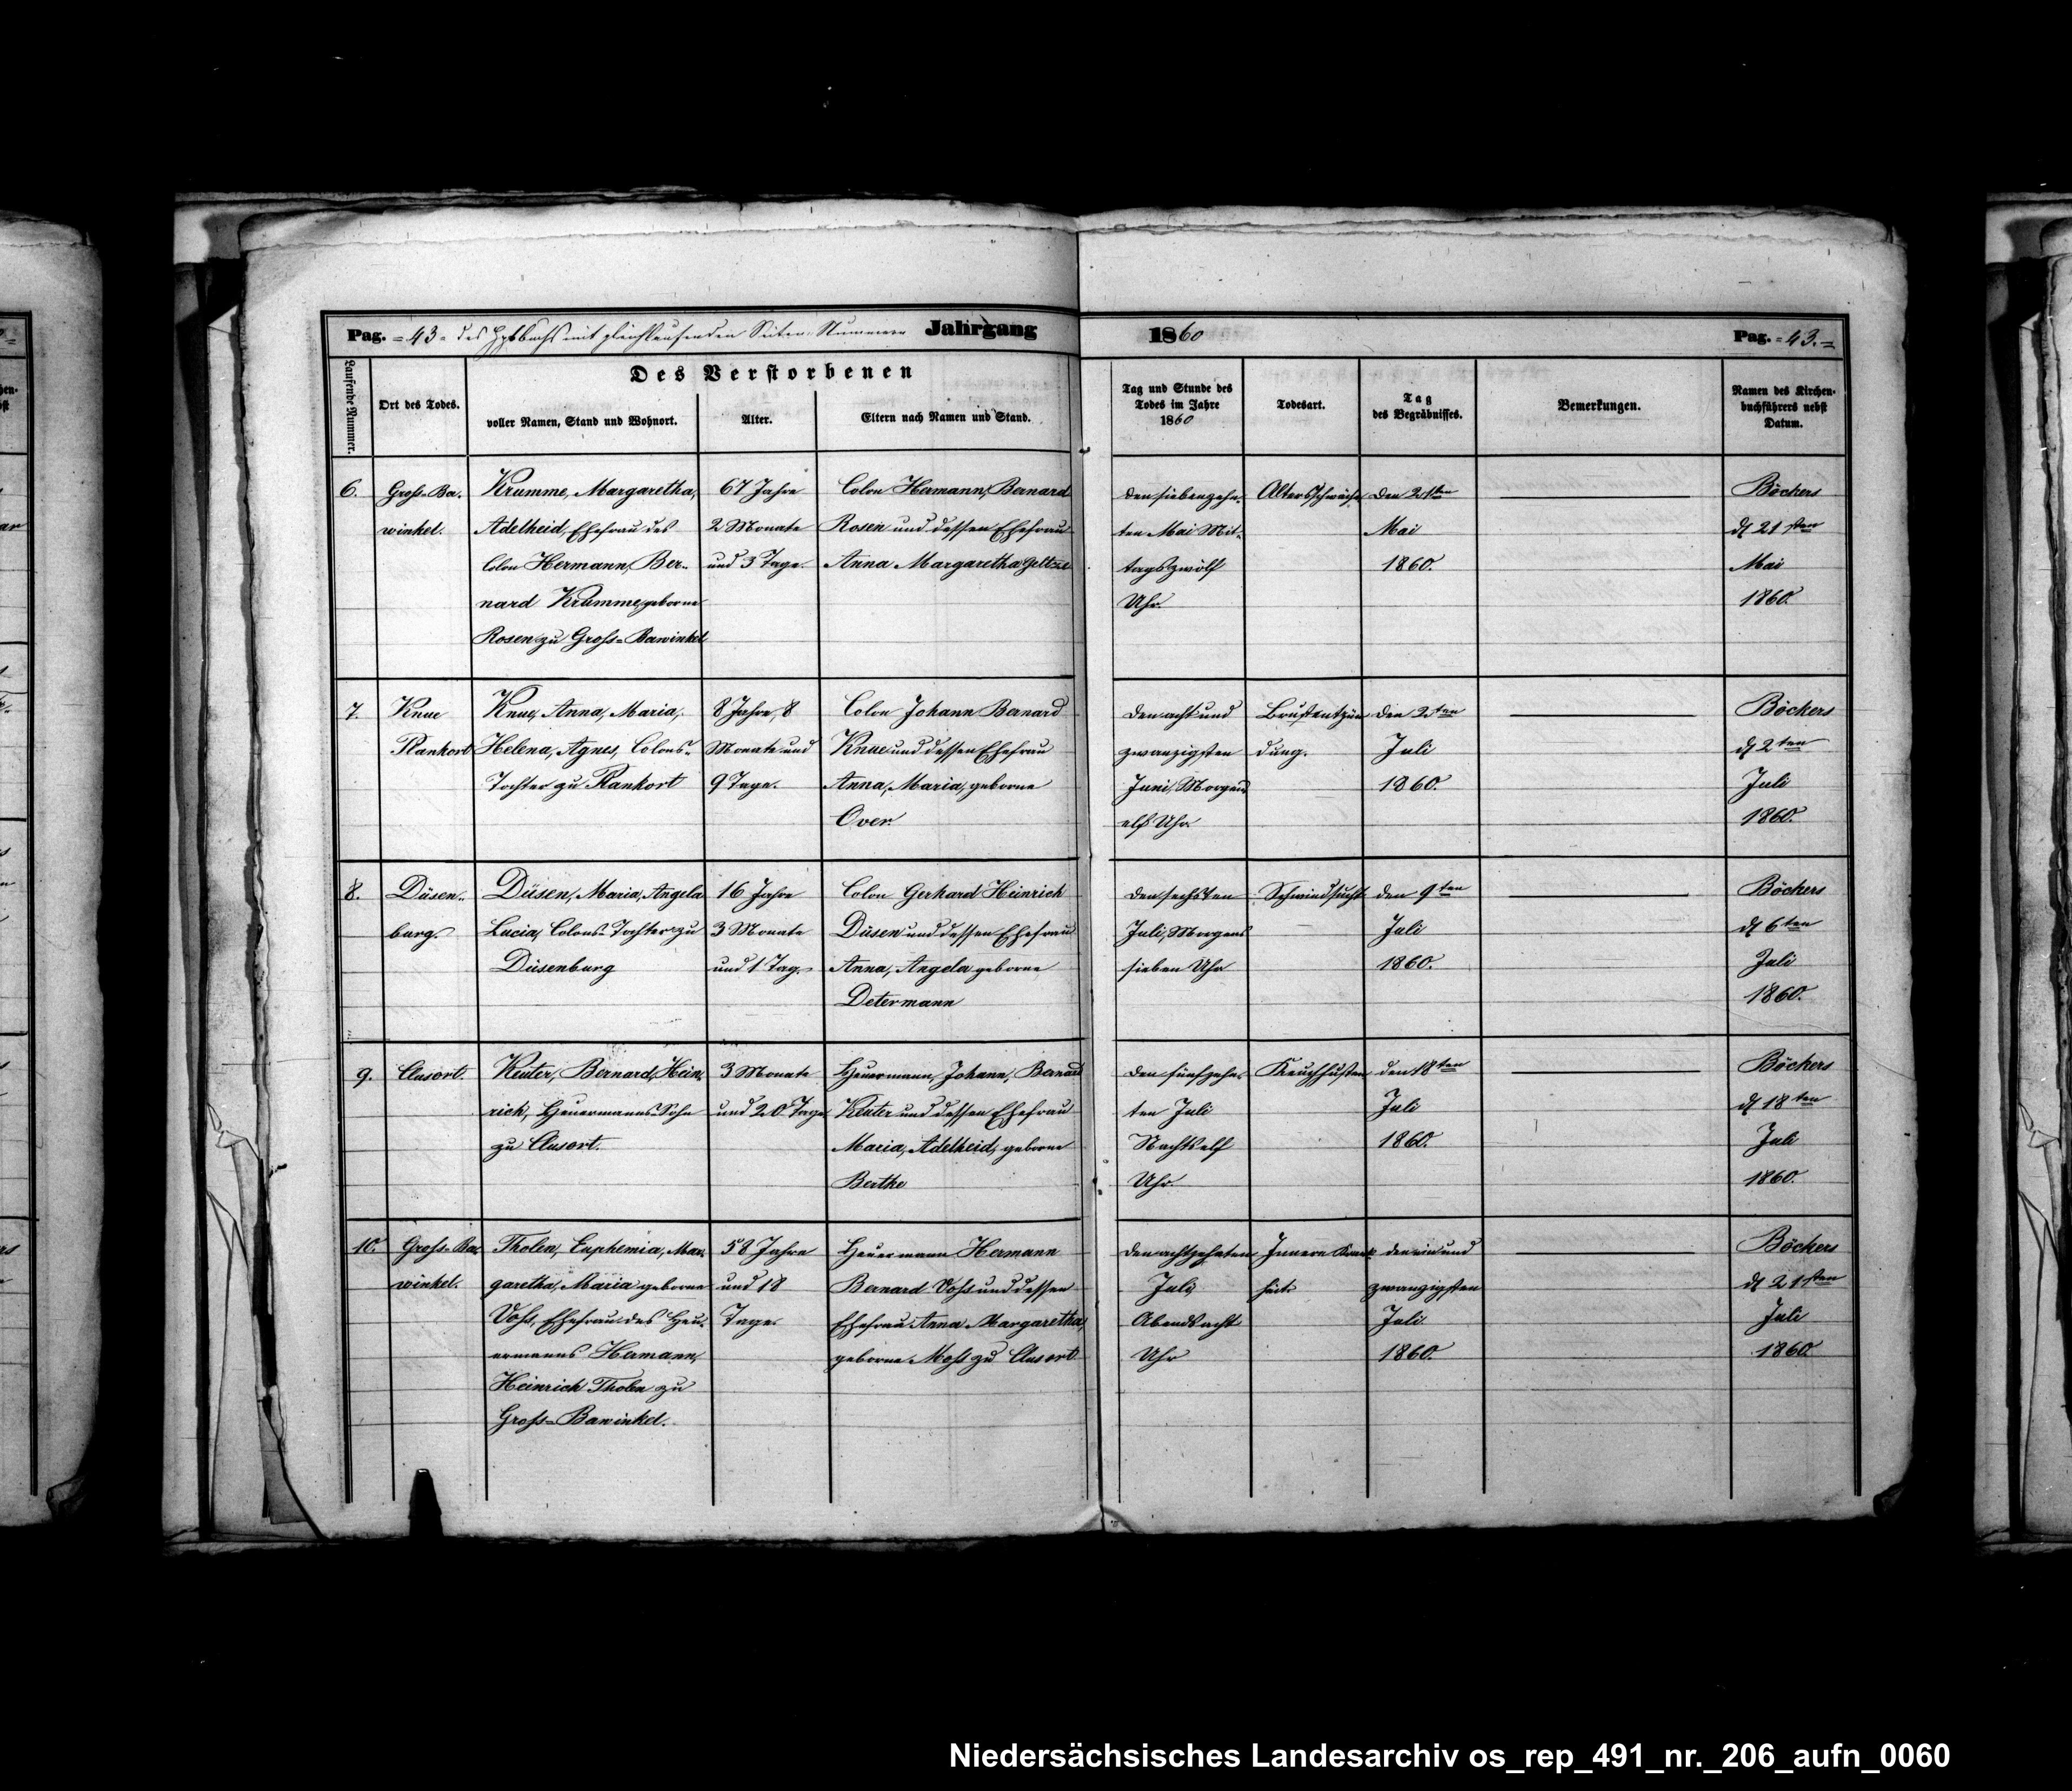 Pag. = 43 = des Hptbuchs mit gleichlaufenden Seiten-Nummern Jahrgang 1860 Pag. = 43. =
Laufende Nummer.
Ort des Todes.
Des Verstorbenen
voller Namen, Stand und Wohnort.
Alter.
Eltern nach Namen und Stand.
Tag und Stunde des
Todes im Jahre
1860
Todesart.
Tag
des Begräbnisses.
Bemerkungen.
Namen des Kirchen-
buchführers nebst
Datum.
6. Groß-Ba- Krumme, Margaretha, 67 Jahre Colon Hermann, Bernard den siebenzehn- Altersschwäche den 21sten Böckers
winkel. Adelheid, Ehefrau des 2 Monate Rosen und dessen Ehefrau ten Mai Mit- Mai d 21sten
Colon Hermann, Ber- und 3 Tage. Anna Margaretha Geltze tags zwölf 1860. Mai
nard Krumme, geborne Uhr. 1860.
Rosen zu Groß-Bawinkel
7. Knue Knue, Anna, Maria, 8 Jahre, 8 Colon Johann Bernard den acht und Brustentzün- den 2ten Böckers
Plankort Helena, Agnes, Colons- Monate und Knue und dessen Ehefrau zwanzigsten dung. Juli d 2ten
Tochter zu Plankort 9 Tage. Anna, Maria, geborne Juni, Morgens 1860. Juli
Over. elf Uhr. 1860.
8. Düsen- Düsen, Maria, Angela 16 Jahre Colon Gerhard Heinrich den sechsten Schwindsucht den 9ten Böckers
burg. Lucia, Colons Tochter zu 3 Monate Düsen und dessen Ehefrau Juli, Morgens Juli d 6ten
Düsenburg und 1 Tag. Anna, Angela geborne sieben Uhr 1860. Juli
Determann 1860.
9. Clusort. Keuter, Bernard, Hein- 3 Monate Heuermann, Johann, Bernard den fünfzehn- Keuchhusten den 18ten Böckers
rich, Heuermanns Sohn und 20 Tage Keuter und dessen Ehefrau ten Juli Juli d 18ten
zu Clusort. Maria, Adelheid, geborne Nachts elf 1860. Juli
Berthe Uhr. 1860.
10. Groß-Ba- Tholen, Euphemia, Mar- 58 Jahre Heuermann Hermann den achtzehnten Innere Krank- den ein und Böckers
winkel. garetha, Maria geborne und 18 Bernard Voß und dessen Juli, heit zwanzigsten d 21sten
Voß, Ehefrau des Heu- Tage. Ehefrau Anna Margaretha, Abends acht Juli Juli
ermanns Hermann, geborne Moß zu Clusort Uhr 1860. 1860.
Heinrich Tholen zu
Groß-Bawinkel.
Niedersächsisches Landesarchiv os_rep_491_nr._206_aufn_0060